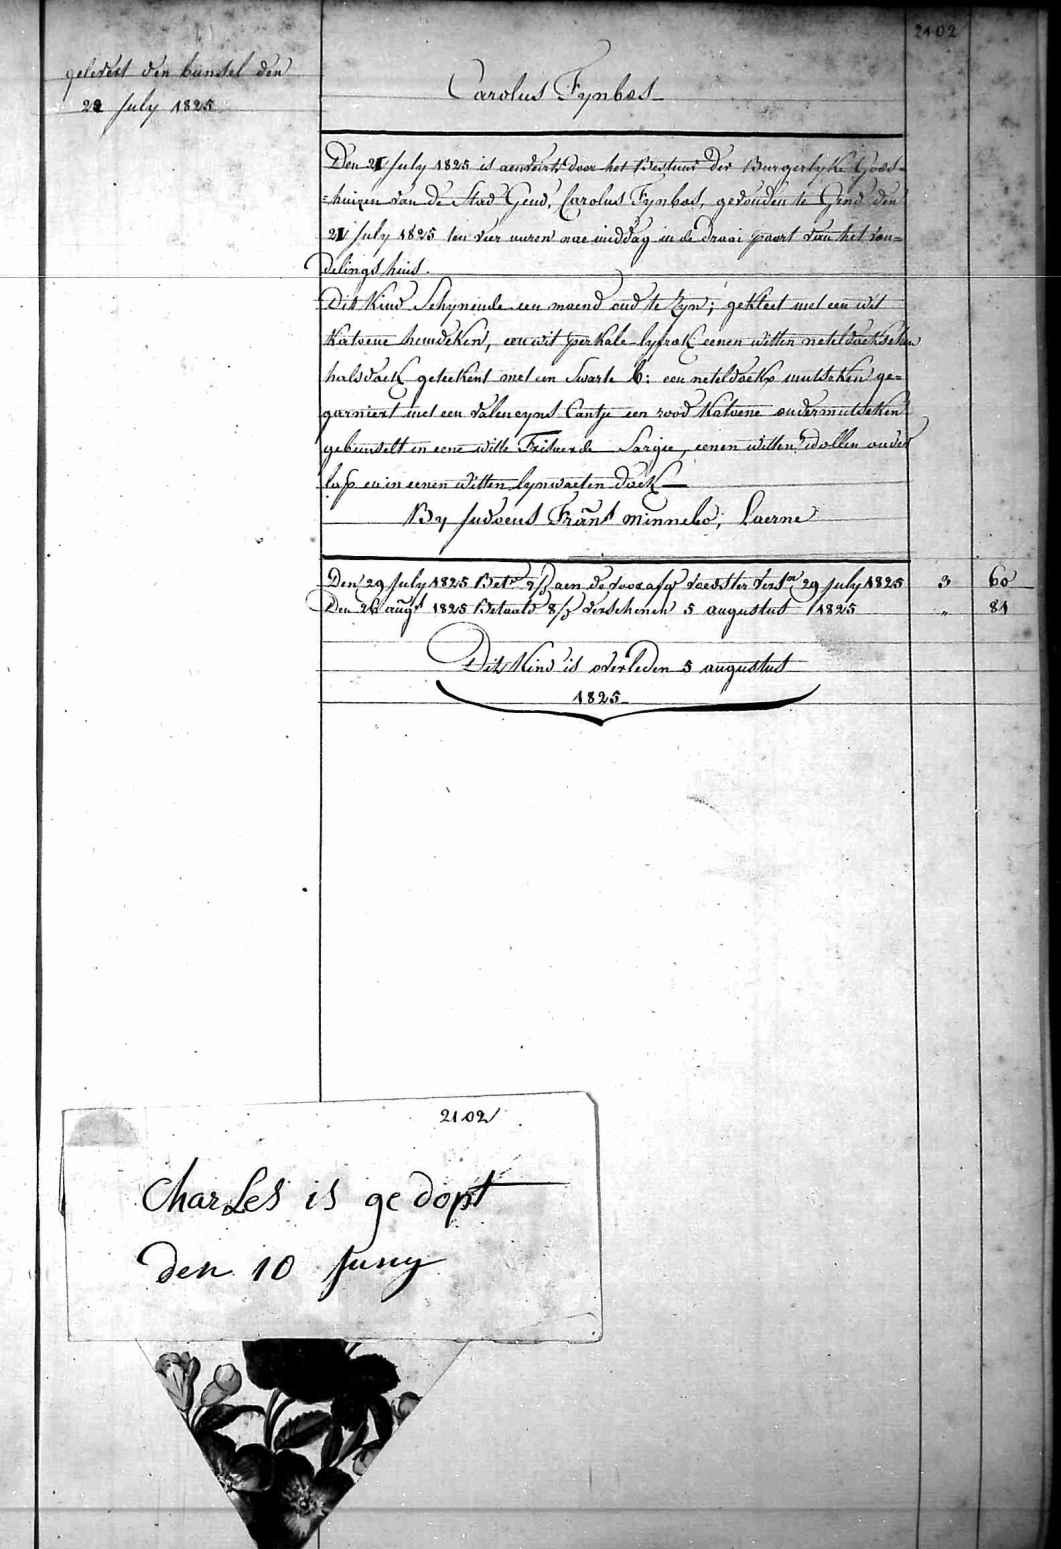 2102
gelevert den bundel den
22 July 1825
Carolus Fynbos
Den 21 July 1825 is aenveirt door het Bestuur der Burgerlyke Gods=
=huizen van de Stad Gend, Carolus Fynbos, gevonden te Gend den
21 July 1825 ten vier uuren nae middag in de Draai poort van het von=
delings huis.
Dit Kind Schynende een maend oud te Zyn; gekleet met een wit
Katoene hemdeken, een wit perkale lyfrok eenen witten neteldoekschen
halsdoek geteekent met een Swarte b: een neteldoekx mutseken ge=
garniert met een valencyns Cantje een rood Katoene ondermutseken
gebunselt in eene witte Sargie, eenen witten wollen onder
lap en in eenen witten lynwaeten doek
By Judocus Frans Minnebo, Laerne
Den 29 July 1825 Bet. aen de voedster 29 July 1825 3 60
Den 26 augt 1825 Betaeld 8/ verschenen 5 augustus 1825 " 81
Dit Kind is overleden 5 augustus
1825
2102
CharLes is gedopt
den 10 Juny